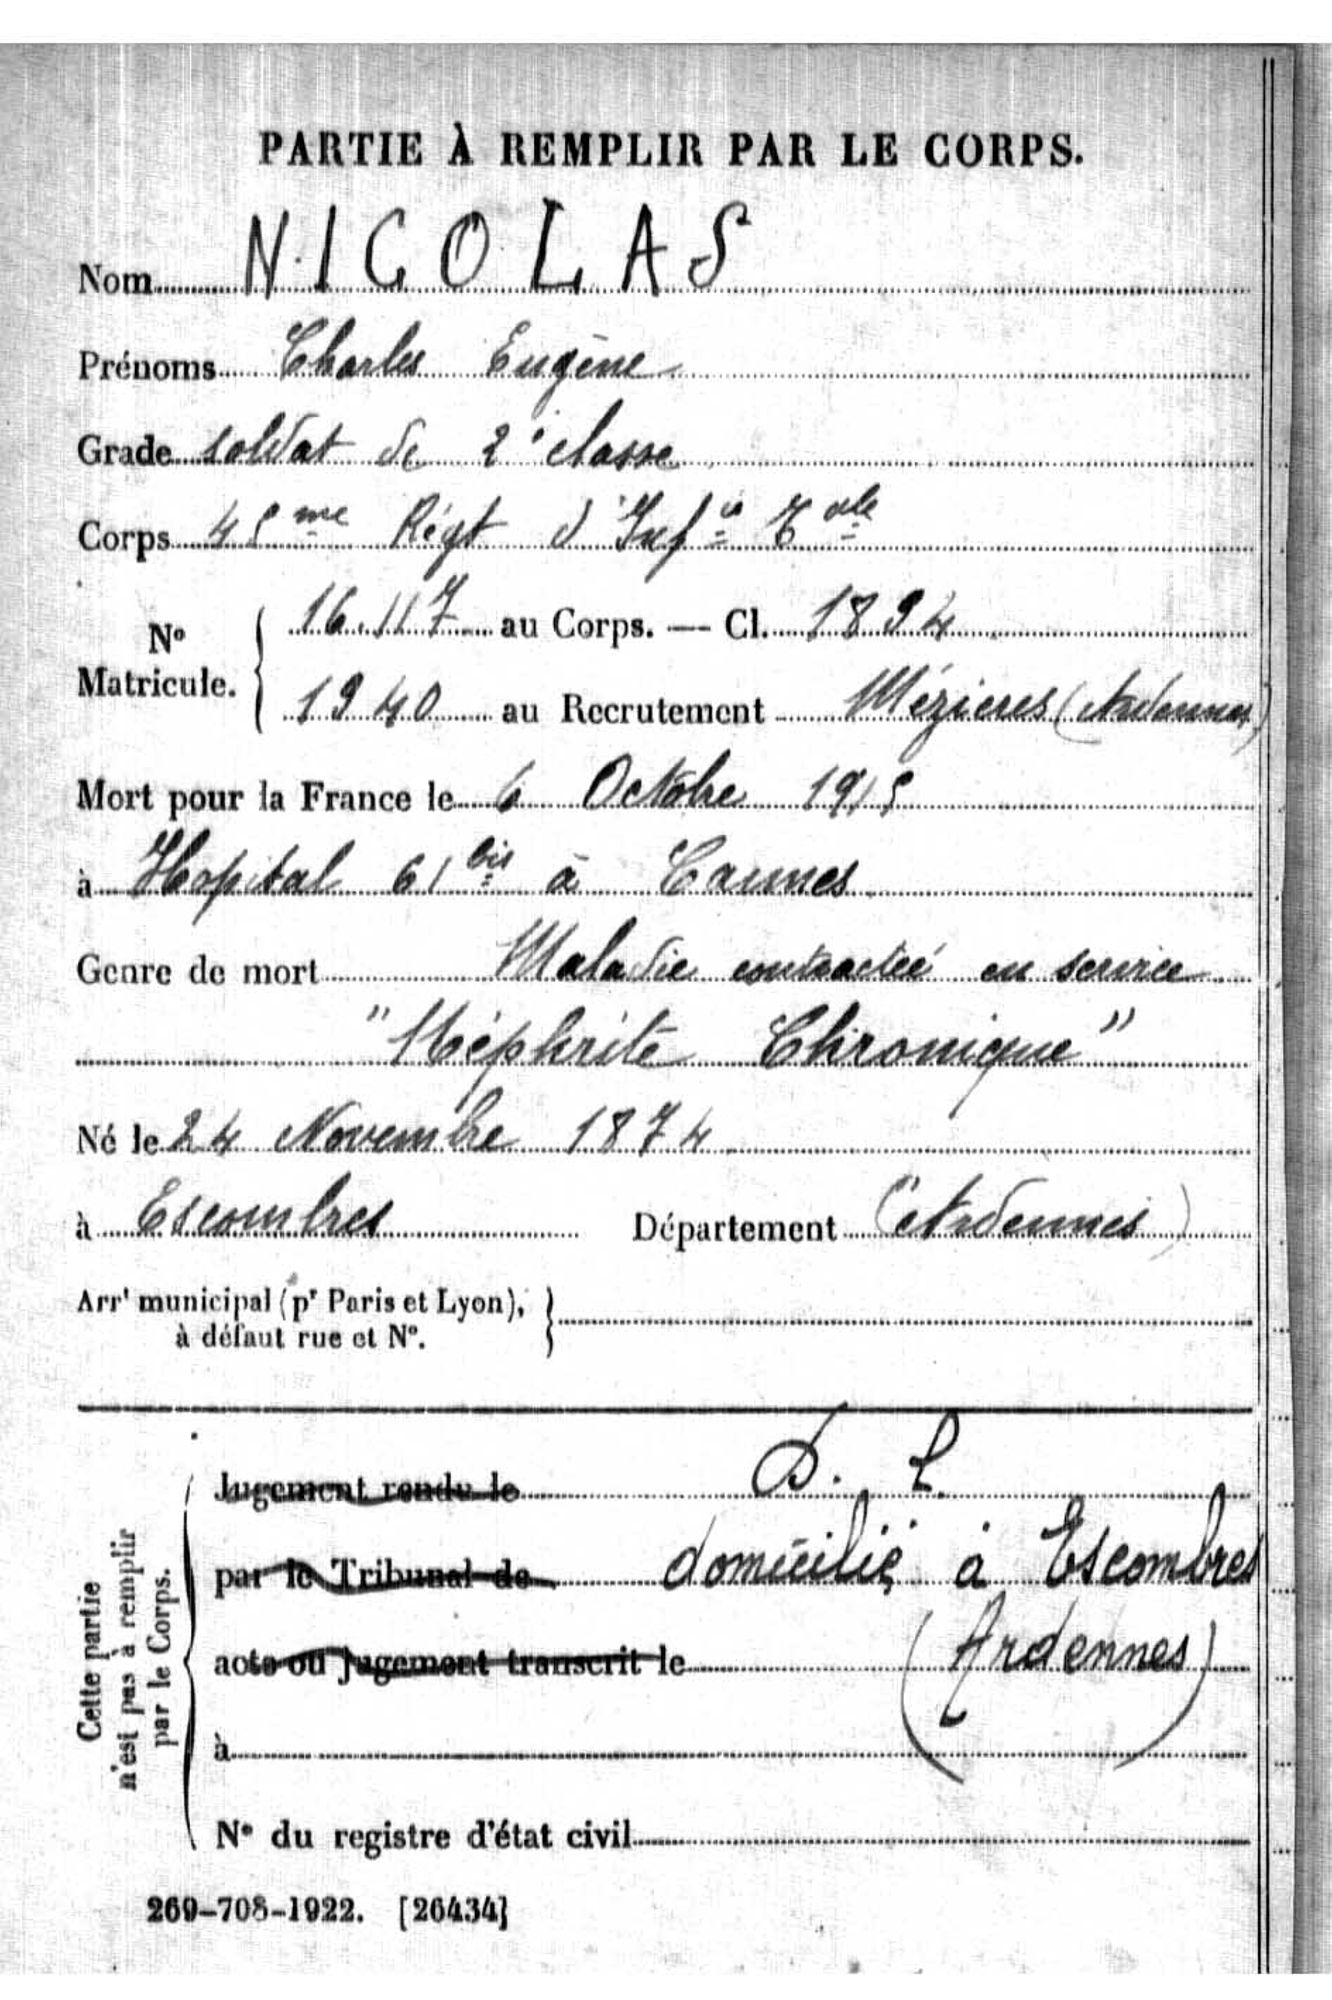 PARTIE À REMPLIR PAR LE CORPS.
Nom NICOLAS
Prénoms Charles Eugène
Grade soldat de 2e classe
Corps 45me Régt d'Infie Tale
No Matricule. { 16.117 au Corps. — Cl. 1894
1940 au Recrutement Mézieres (Ardennes)
Mort pour la France le 6 Octobre 1915
à Hopital 61 bis à Cannes
Genre de mort Maladie contractée en service
"Néphrite Chronique"
Né le 24 Novembre 1874
à Escombres Département (Ardennes)
Arrt municipal (pr Paris et Lyon), }
à défaut rue et No.
Cette partie
n'est pas à remplir
par le Corps.
Jugement rendu le D. L.
par le Tribunal de domicilié à Escombres
acte ou jugement transcrit le (Ardennes)
à
No du registre d'état civil
269-708-1922. [26434]